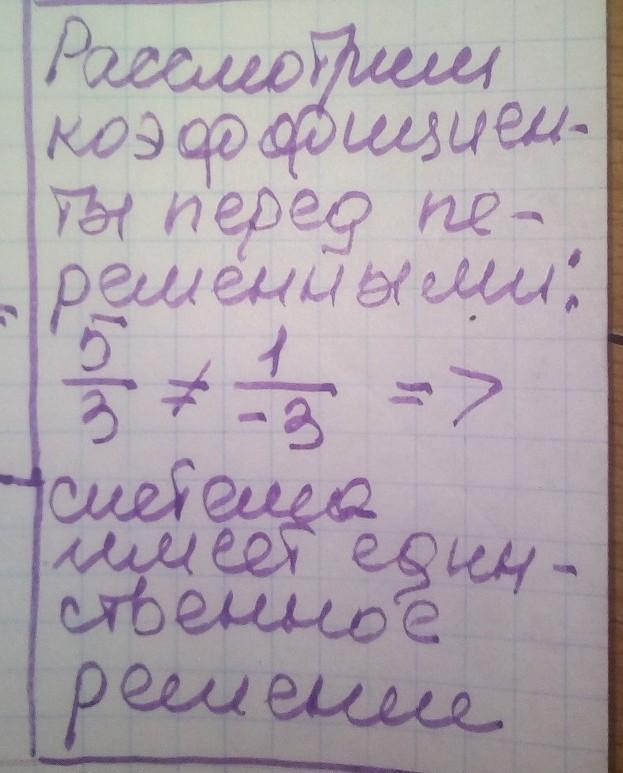 Рассмотрим
коэффициен-
ты перед пе-
ременными:
5/3 ≠ 1/-3 =>
система
имеет един-
ственное
решение